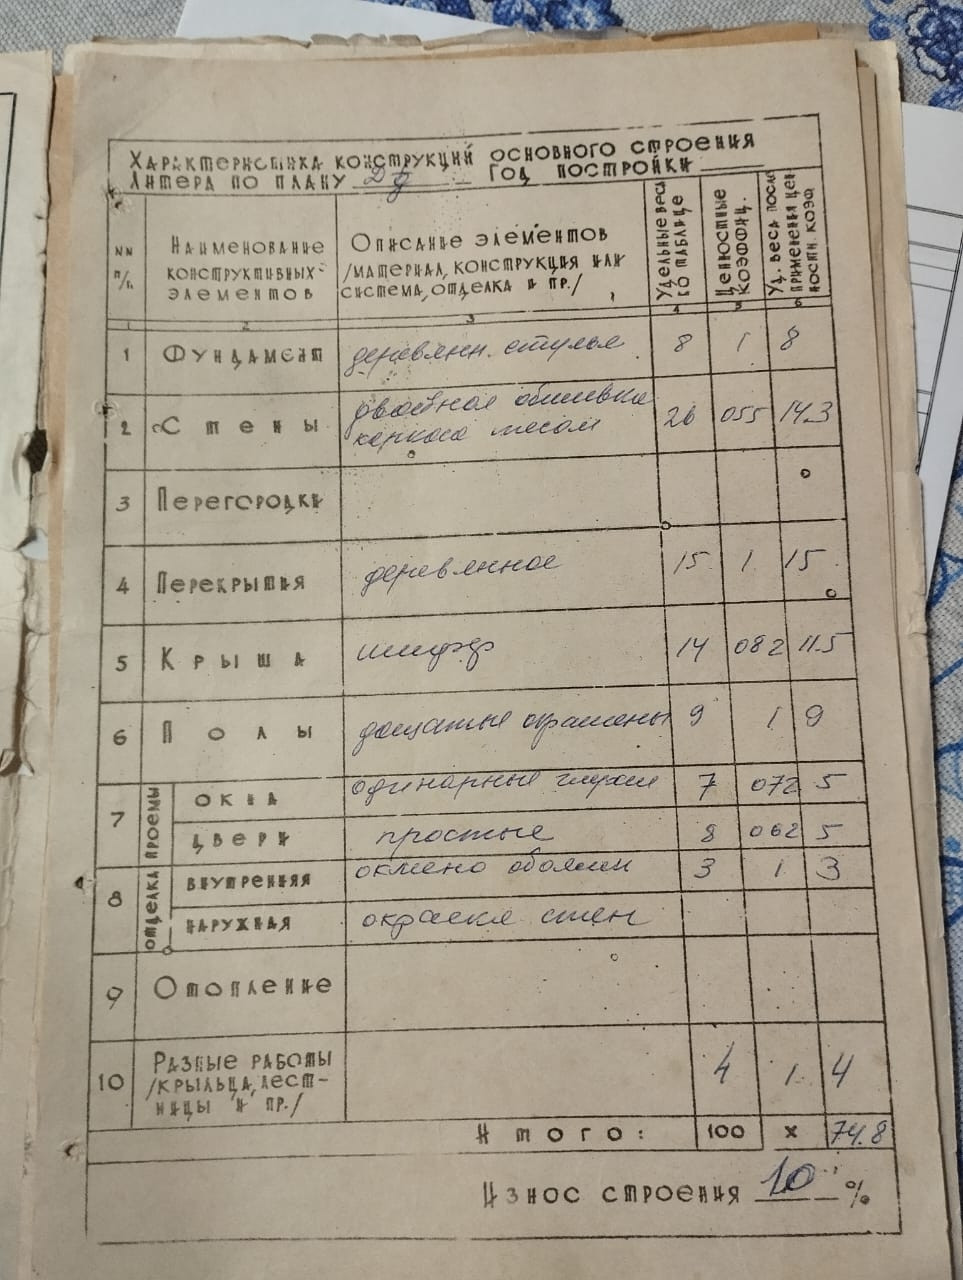 Характеристика конструкций основного строения
Литера по плану Год постройки
NN п/п.
Наименование конструктивных элементов
Описание элементов /материал, конструкция или система, отделка и пр./
Удельные веса по таблице
Ценностные коэффиц.
Уд. веса после применения ценностн. коэф
1 2 3 4 5 6
1 Фундамент деревянн. стулья 8 1 8
2 Стены двойная обшивка каркаса тесом 26 055 14.3
3 Перегородки
4 Перекрытия деревянное 15 1 15
5 Крыша шифер 14 082 11.5
6 Полы дощатые окрашены 9 1 9
7 проемы окна одинарные глухие 7 072 5
двери простые 8 062 5
8 отделка внутренняя оклеено обоями 3 1 3
наружная окраска стен
9 Отопление
10 Разные работы /крыльца, лестницы и пр./ 4 1 4
Итого: 100 x 74.8
Износ строения 10 %